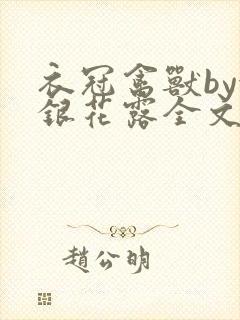 衣冠禽獸by
銀花露全文
趙公明